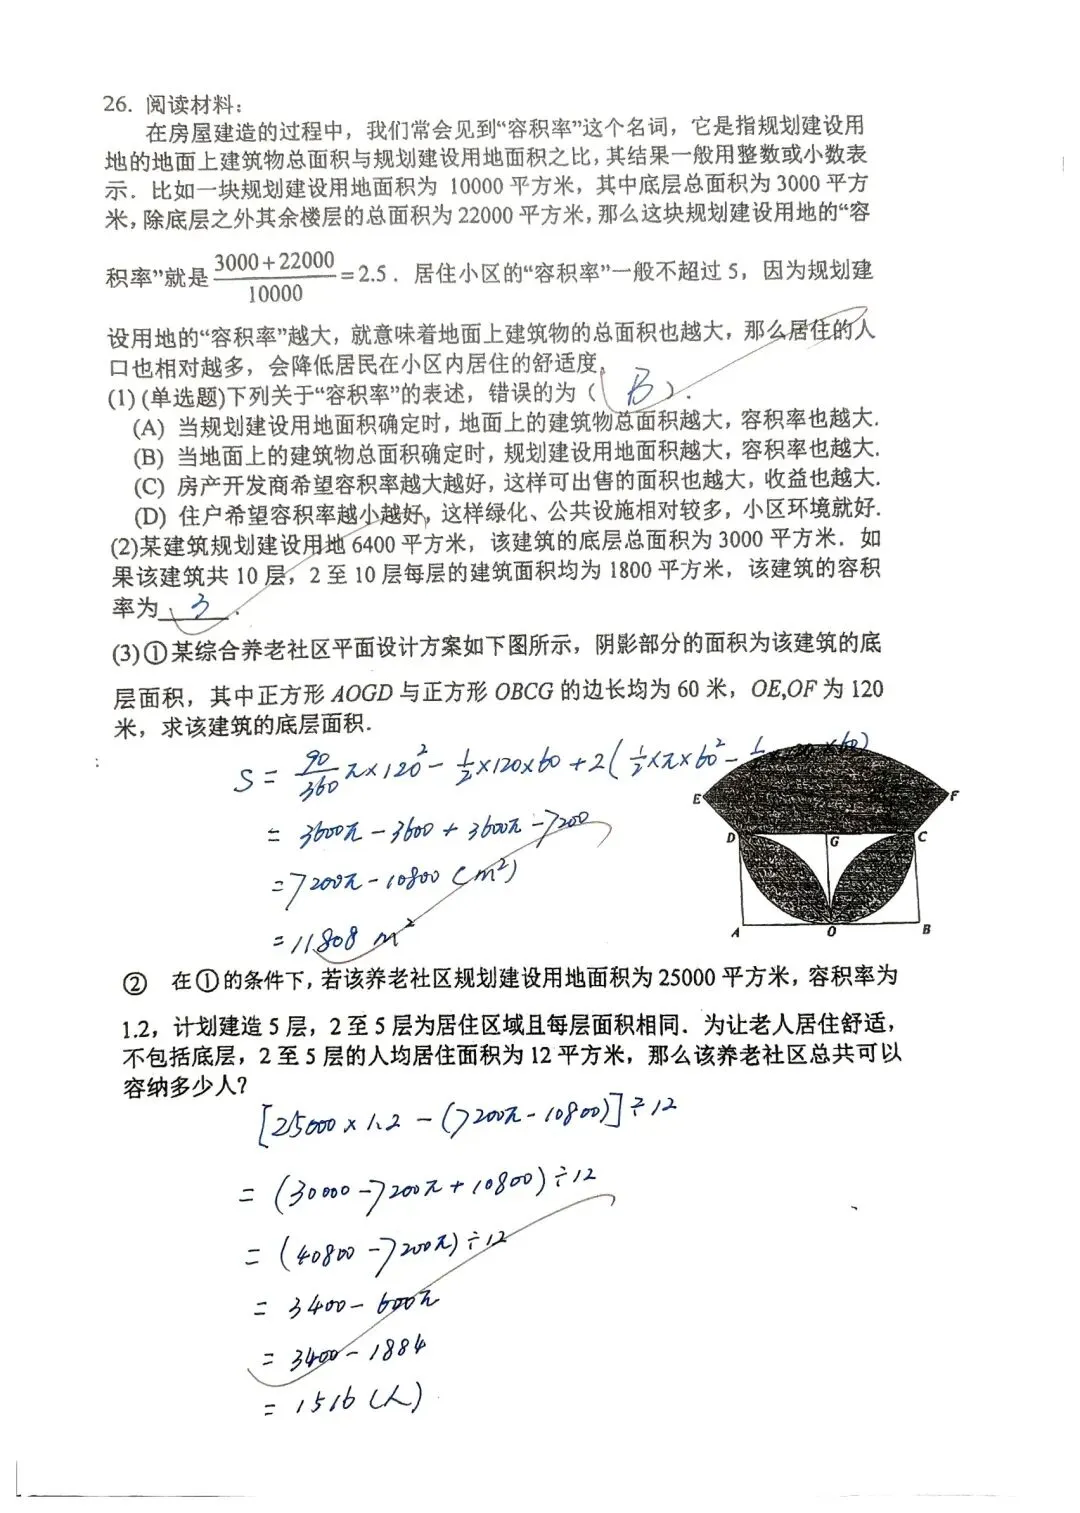 26. 阅读材料：
在房屋建造的过程中，我们常会见到“容积率”这个名词，它是指规划建设用
地的地面上建筑物总面积与规划建设用地面积之比，其结果一般用整数或小数表
示．比如一块规划建设用地面积为 10000 平方米，其中底层总面积为 3000 平方
米，除底层之外其余楼层的总面积为 22000 平方米，那么这块规划建设用地的“容
积率”就是 (3000+22000)/10000 =2.5．居住小区的“容积率”一般不超过 5，因为规划建
设用地的“容积率”越大，就意味着地面上建筑物的总面积也越大，那么居住的人
口也相对越多，会降低居民在小区内居住的舒适度．
(1) (单选题)下列关于“容积率”的表述，错误的为（ B ）．
(A) 当规划建设用地面积确定时，地面上的建筑物总面积越大，容积率也越大．
(B) 当地面上的建筑物总面积确定时，规划建设用地面积越大，容积率也越大．
(C) 房产开发商希望容积率越大越好，这样可出售的面积也越大，收益也越大．
(D) 住户希望容积率越小越好，这样绿化、公共设施相对较多，小区环境就好．
(2)某建筑规划建设用地 6400 平方米，该建筑的底层总面积为 3000 平方米．如
果该建筑共 10 层，2 至 10 层每层的建筑面积均为 1800 平方米，该建筑的容积
率为 3 ．
(3)①某综合养老社区平面设计方案如下图所示，阴影部分的面积为该建筑的底
层面积，其中正方形 AOGD 与正方形 OBCG 的边长均为 60 米，OE,OF 为 120
米，求该建筑的底层面积．
S = 90/360 π×120² - 1/2×120×60 + 2(1/2×π×60² -
= 3600π - 3600 + 3600π - 7200
= 7200π - 10800 (m²)
= 11808 m²
E
F
D
G
C
A
O
B
② 在①的条件下，若该养老社区规划建设用地面积为 25000 平方米，容积率为
1.2，计划建造 5 层，2 至 5 层为居住区域且每层面积相同．为让老人居住舒适，
不包括底层，2 至 5 层的人均居住面积为 12 平方米，那么该养老社区总共可以
容纳多少人？
[25000×1.2 - (7200π - 10800)] ÷12
= (30000 - 7200π + 10800) ÷12
= (40800 - 7200π) ÷12
= 3400 - 600π
= 3400 - 1884
= 1516 (人)